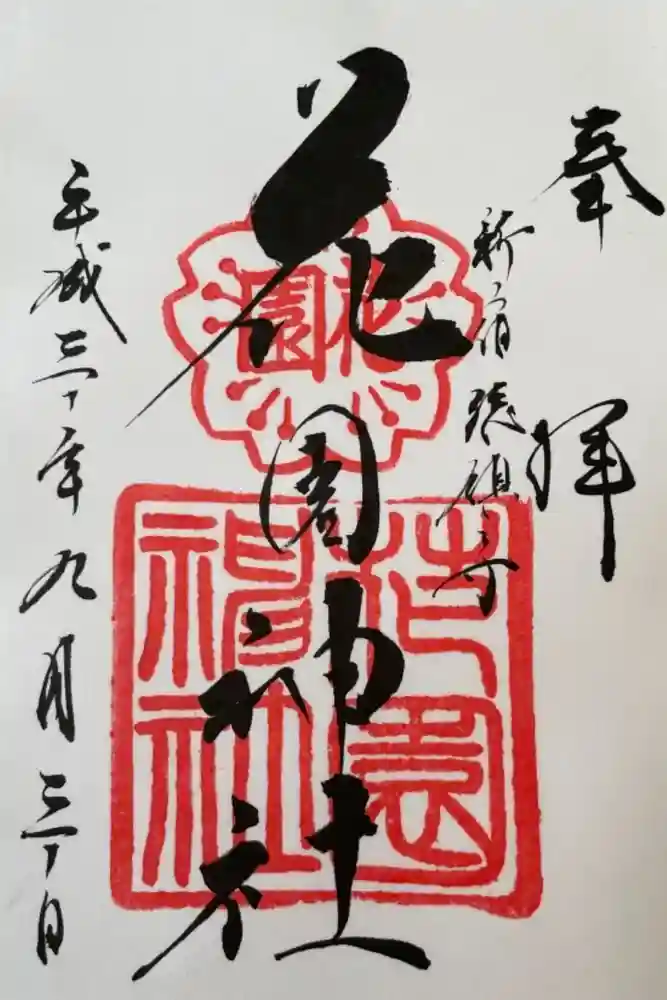 奉拝
新宿総鎮守
花園神社
平成三十年九月三十日
花園
花園
神社